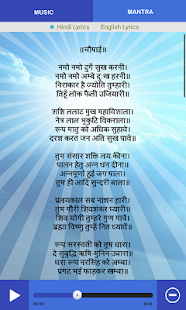 MUSIC
MANTRA
Hindi Lyrics
English Lyrics
॥चौपाई॥
नमो नमो दुर्गे सुख करनी।
नमो नमो अम्बे दुःख हरनी॥
निराकार है ज्योति तुम्हारी।
तिहूँ लोक फैली उजियारी॥
शशि ललाट मुख महाविशाला।
नेत्र लाल भृकुटि विकराला॥
रूप मातु को अधिक सुहावे।
दरश करत जन अति सुख पावे॥
तुम संसार शक्ति लय कीना।
पालन हेतु अन्न धन दीना॥
अन्नपूर्णा हुई जग पाला।
तुम ही आदि सुन्दरी बाला॥
प्रलयकाल सब नाशन हारी।
तुम गौरी शिवशंकर प्यारी॥
शिव योगी तुम्हरे गुण गावें।
ब्रह्मा विष्णु तुम्हें नित ध्यावें॥
रूप सरस्वती को तुम धारा।
दे सुबुद्धि ऋषि-मुनिन उबारा॥
धरा रूप नरसिंह को अम्बा।
प्रगट भई फाड़कर खम्बा॥